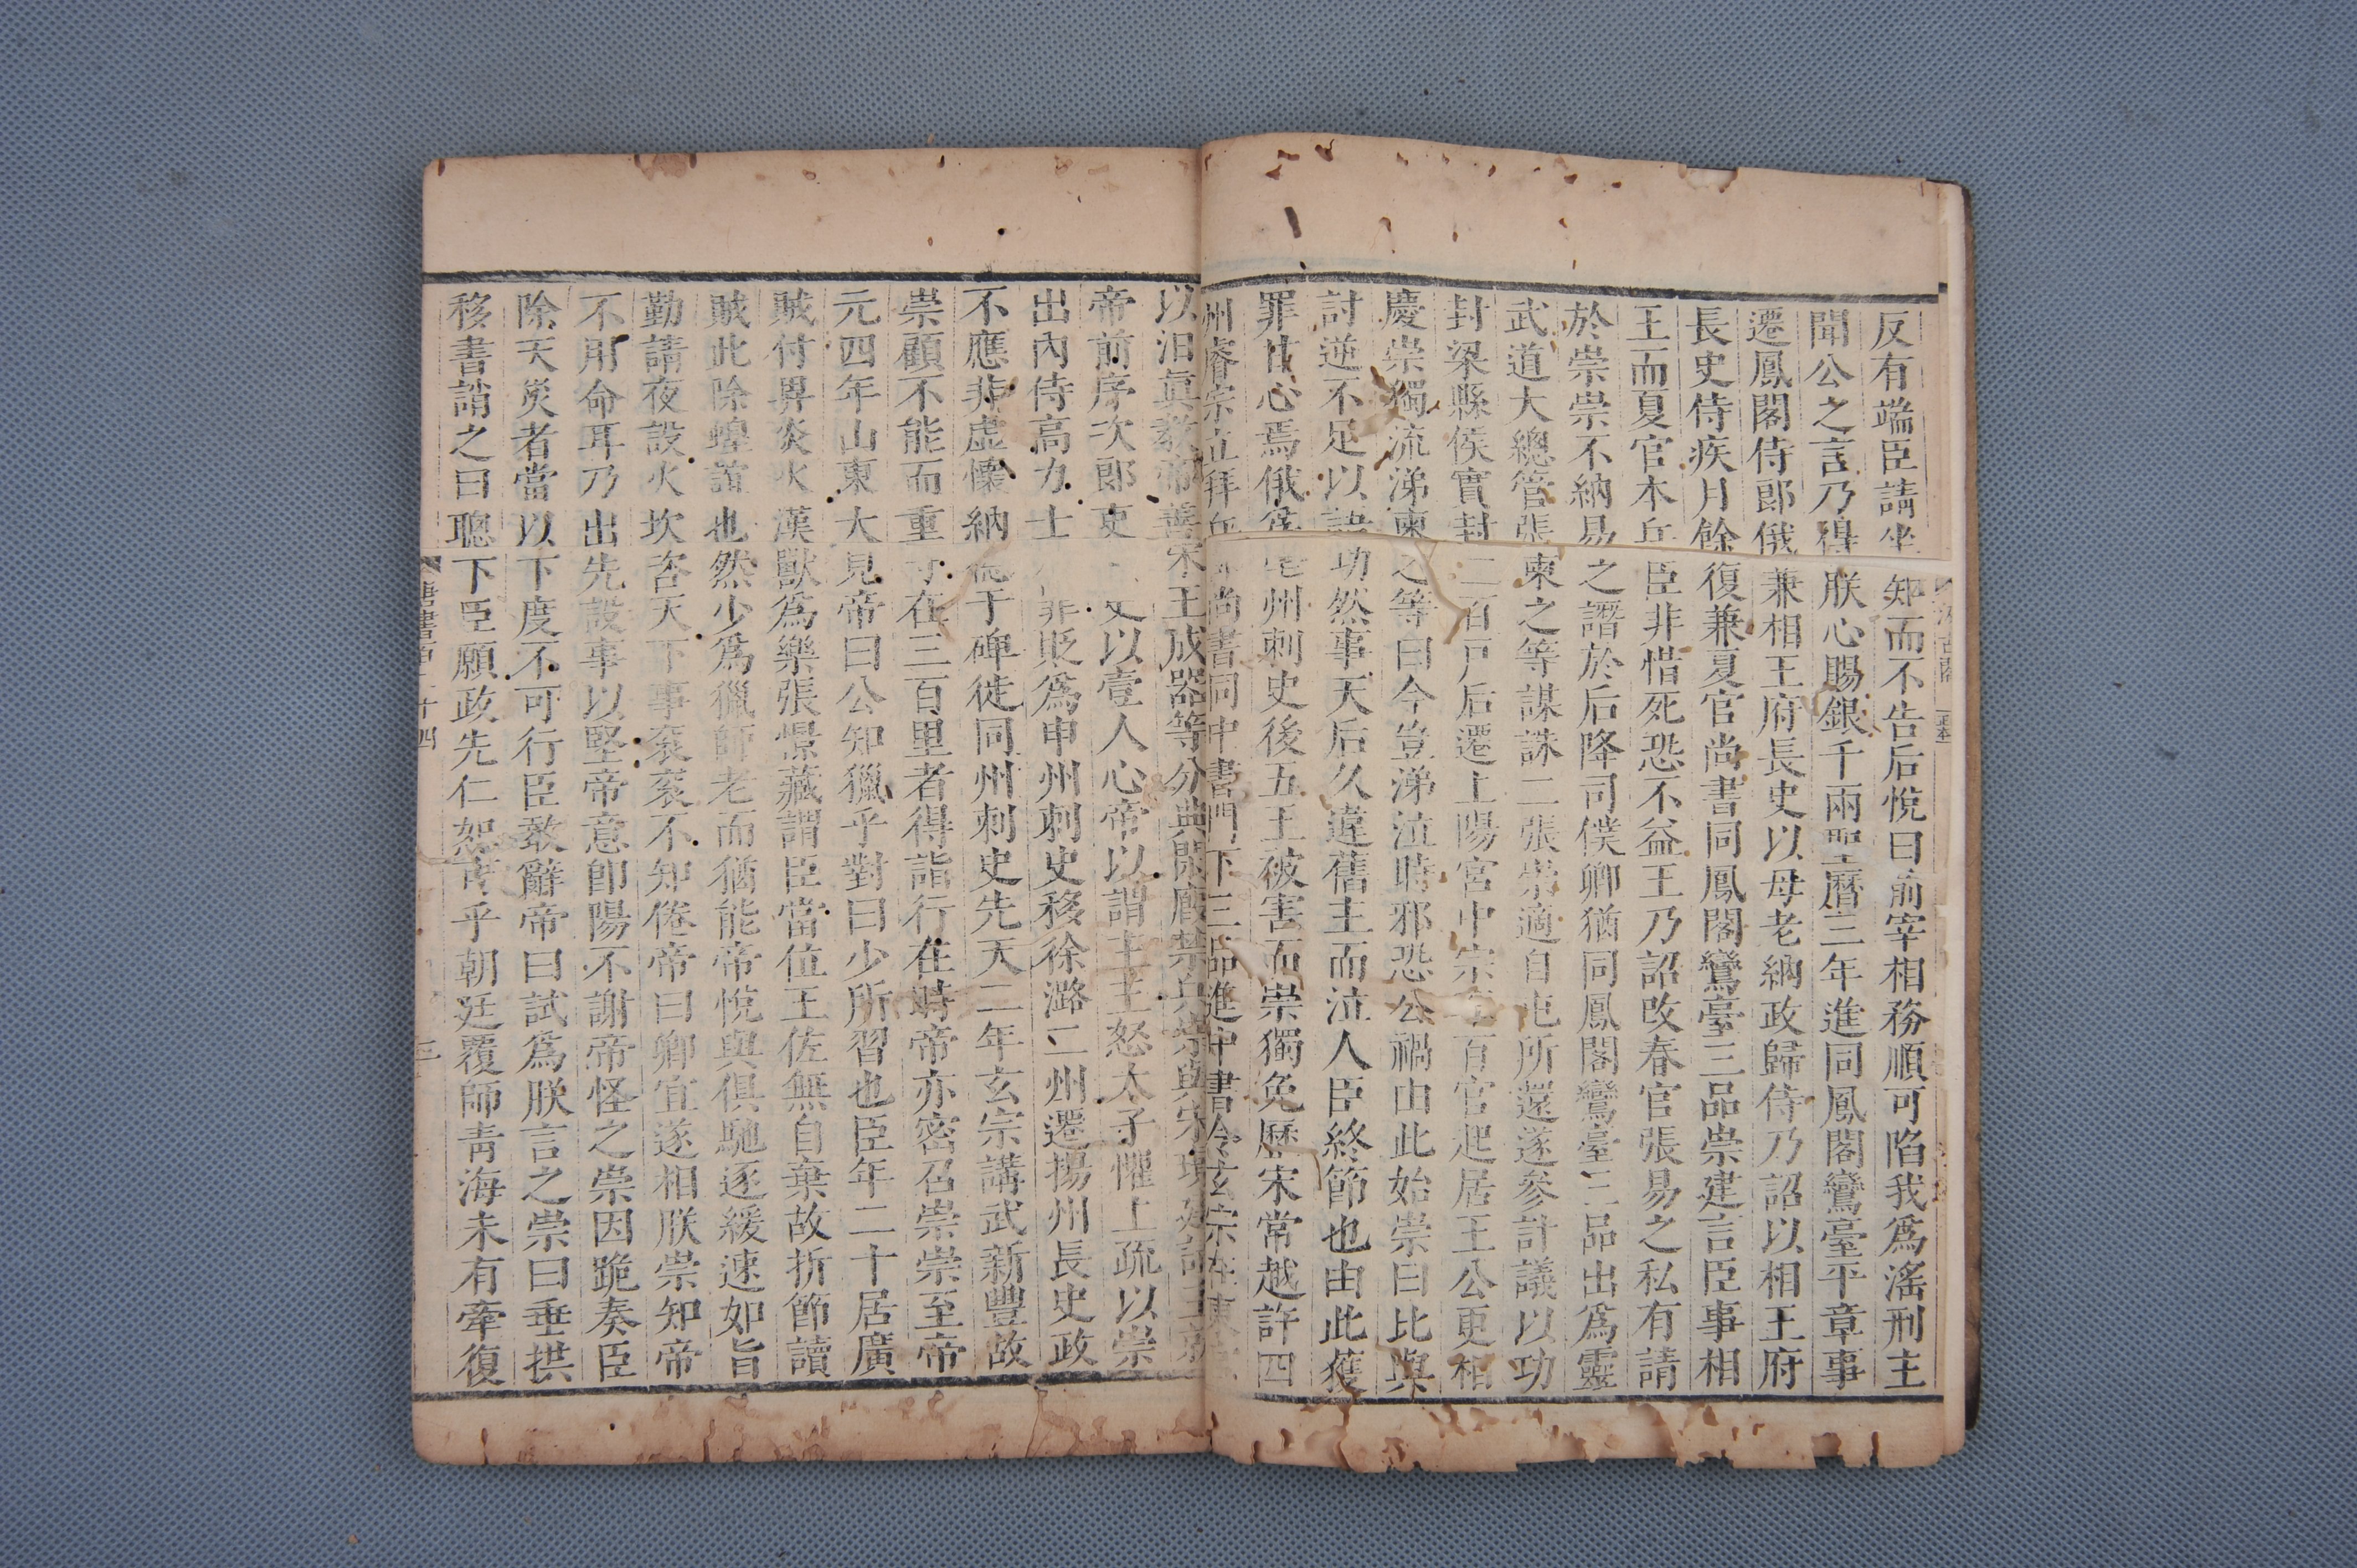 汲古閣
反有端臣請坐知而不告后悅曰前宰相務順可陷我爲滛刑主
聞公之言乃得朕心賜銀千兩聖曆三年進同鳳閣鸞臺平章事
遷鳳閣侍郎俄兼相王府長史以母老納政歸侍乃詔以相王府
長史侍疾月餘復兼夏官尚書同鳳閣鸞臺三品崇建言臣事相
王而夏官本兵臣非惜死恐不益王乃詔改春官張易之私有請
於崇崇不納易之譖於后降司僕卿猶同鳳閣鸞臺三品出爲靈
武道大總管張柬之等謀誅二張崇適自屯所還遂參計議以功
封梁縣侯實封二百戸后遷上陽宮中宗率百官起居王公更相
慶崇獨流涕柬之等曰今豈涕泣時邪恐公禍由此始崇曰比與
討逆不足以語功然事天后久違舊主而泣人臣終節也由此獲
罪甘心焉俄爲亳州刺史後五王被害而崇獨免歷宋常越許四
州睿宗立拜兵部尚書同中書門下三品進中書令玄宗在東
以汨眞教帝善宋王成器等分典閑廄禁兵崇與宋璟建請主就
帝前序次郎吏史以壹人心帝以謂主主怒太子懼上疏以崇
出內侍高力士罪貶爲申州刺史移徐潞二州遷揚州長史政
不應非虛懷納于碑徙同州刺史先天二年玄宗講武新豐故
崇顧不能而重守在三百里者得詣行在時帝亦密召崇崇至帝
元四年山東大見帝曰公知獵乎對曰少所習也臣年二十居廣
賊付畀炎火漢獸爲樂張憬藏謂臣當位王佐無自棄故折節讀
賊此除蝗誼也然少爲獵師老而猶能帝悅與俱馳逐緩速如旨
勤請夜設火坎咨天下事袞袞不知倦帝曰卿宜遂相朕崇知帝
不用命耳乃出先設事以堅帝意卽陽不謝帝怪之崇因跪奏臣
除天災者當以下度不可行臣敢辭帝曰試爲朕言之崇曰垂拱
移書誚之曰聰下臣願政先仁恕可乎朝廷覆師靑海未有牽復
唐書 十四 三